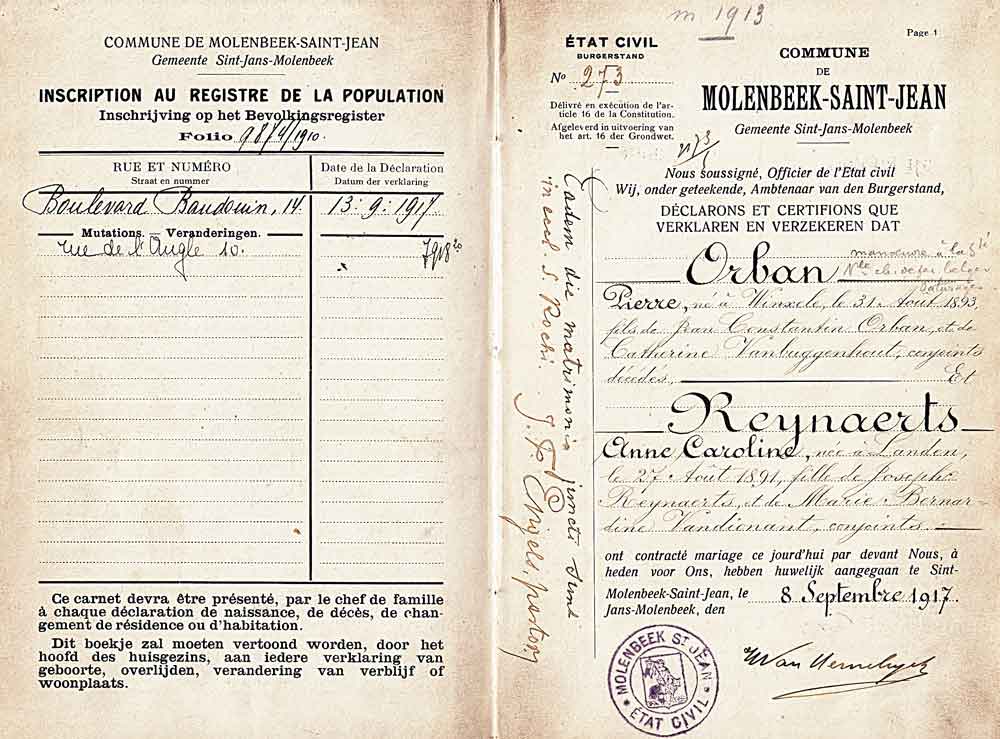 COMMUNE DE MOLENBEEK-SAINT-JEAN
Gemeente Sint-Jans-Molenbeek
INSCRIPTION AU REGISTRE DE LA POPULATION
Inschrijving op het Bevolkingsregister
Folio
RUE ET NUMÉRO
Straat en nummer
Date de la Déclaration
Datum der verklaring
Boulevard Baudouin, 14
13 : 9 : 1917
Mutations. — Veranderingen.
rue de l'Angle 10.
Ce carnet devra être présenté, par le chef de famille
à chaque déclaration de naissance, de décès, de chan-
gement de résidence ou d'habitation.
Dit boekje zal moeten vertoond worden, door het
hoofd des huisgezins, aan iedere verklaring van
geboorte, overlijden, verandering van verblijf of
woonplaats.
m 1913
Page 1
ÉTAT CIVIL
BURGERSTAND
No 273
Délivré en exécution de l'ar-
ticle 16 de la Constitution.
Afgeleverd in uitvoering van
het art. 16 der Grondwet.
COMMUNE
DE
MOLENBEEK-SAINT-JEAN
Gemeente Sint-Jans-Molenbeek
Nous soussigné, Officier de l'Etat civil
Wij, onder geteekende, Ambtenaar van den Burgerstand,
DÉCLARONS ET CERTIFIONS QUE
VERKLAREN EN VERZEKEREN DAT
Orban
Pierre, né à Winxele, le 31 Août 1893,
fils de Jean Constantin Orban, et de
Catherine Vanbuggenhout, conjoints
décédés, Et
Reynaerts
Anne Caroline, née à Landen,
le 27 Août 1891, fille de Joseph
Reynaerts, et de Marie Bernar-
dine Vandienant, conjoints.
ont contracté mariage ce jourd'hui par devant Nous, à
heden voor Ons, hebben huwelijk aangegaan te Sint-
Molenbeek-Saint-Jean, le
Jans-Molenbeek, den
8 Septembre 1917.
Eadem die matrimonio juncti sunt
in eccl. S. Rochi.
MOLENBEEK ST JEAN
ÉTAT CIVIL